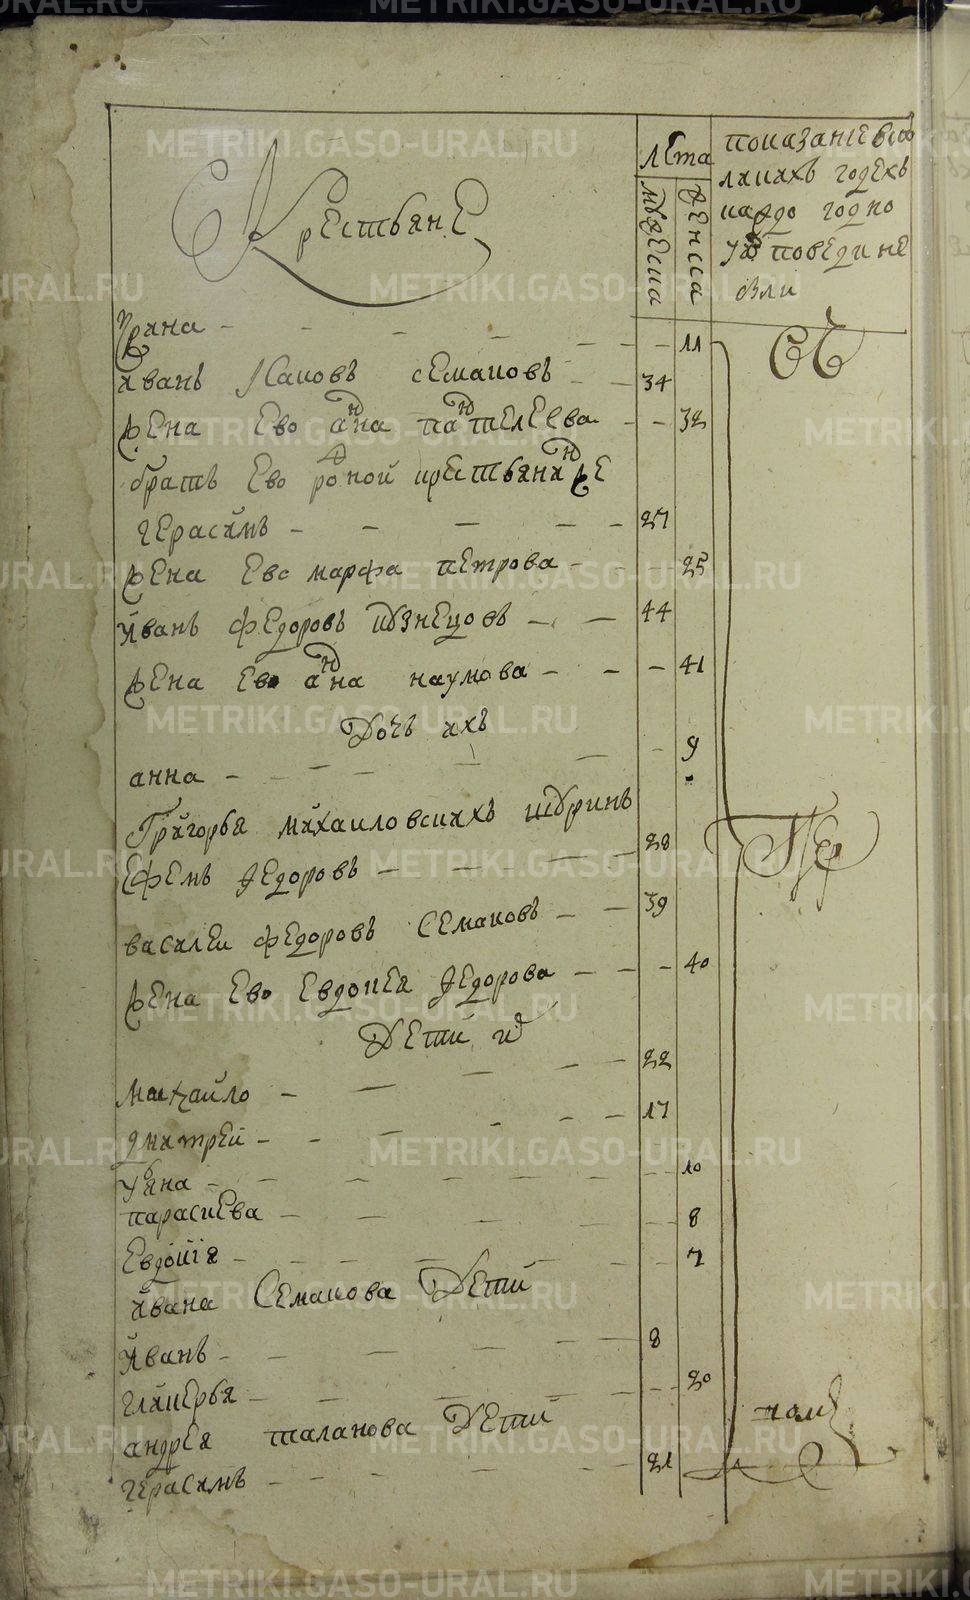 Крестьяне
лѣта
мужеска
женска
показание в ка
ких годех
когдо годно
уже поведи не
были
Ирина 11
Иван Исаков Семаков 34
Жена ево анна пантелеева 32
брат ево родной крестьянин же
герасим 27
Жена ево марфа петрова 25
Иван федоров кузнецов 44
Жена ево анна наумова 41
Дочь их
анна 9
Григорья михаиловских шурин
Ефем федоров 28
василеи федоров Семаков 39
Жена ево Евдокея федорова 40
Дети их
михаило 22
дмитреи 17
Улияна 10
параскева 8
Евдокия 7
ивана Семакова дети
Иван 8
гликерья 20
андрея таланова дети
герасим 21
METRIKI.GASO-URAL.RU